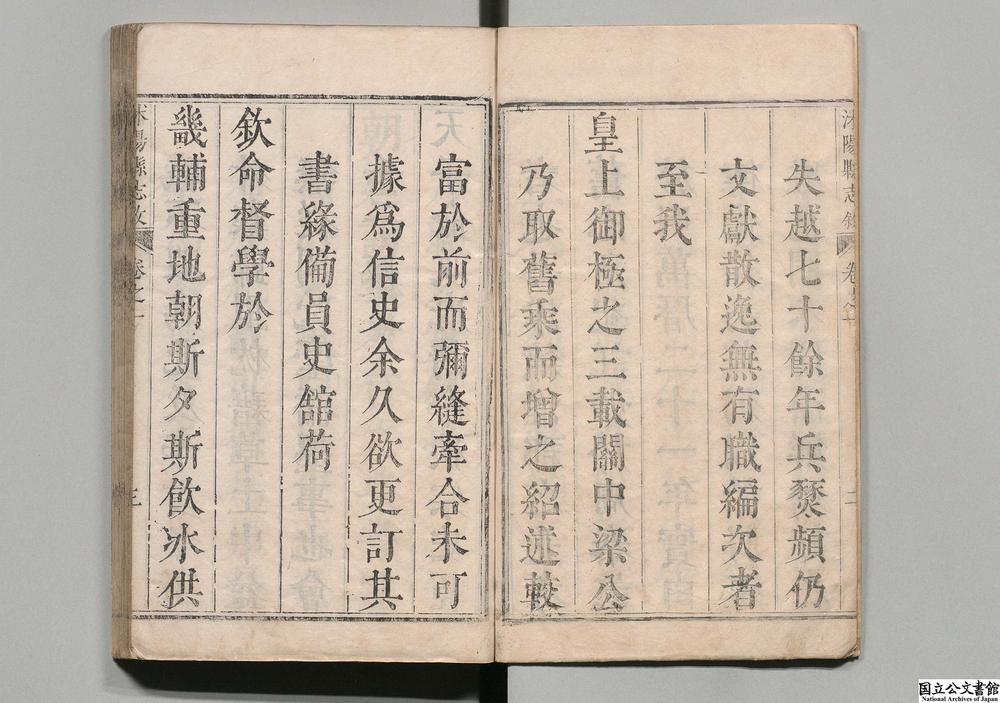 沭陽縣志敘 卷
二
失越七十餘年兵燹頻仍
文獻散逸無有職編次者
至我
皇上御極之三載關中梁公
乃取舊乘而增之紹述較
富於前而彌縫牽合未可
據爲信史余久欲更訂其
書緣備員史舘荷
欽命督學於
畿輔重地朝斯夕斯飲冰供
沭陽縣志 卷之一
三
国立公文書館
National Archives of Japan